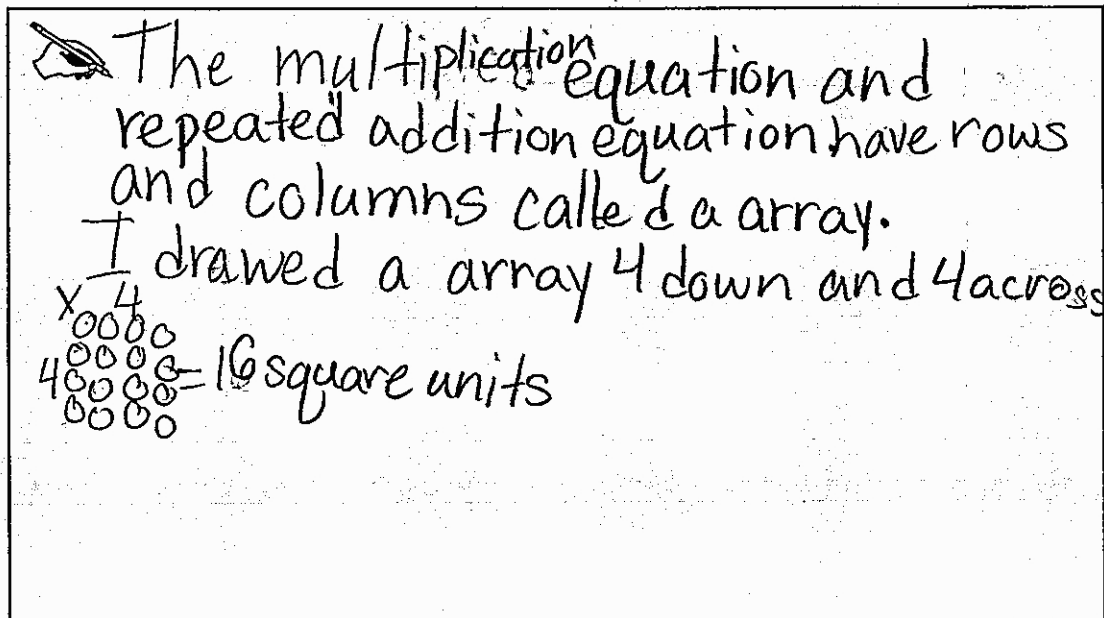 The multiplication equation and
repeated addition equation have rows
and columns called a array.
I drawed a array 4 down and 4 across
x 4
4 = 16 square units